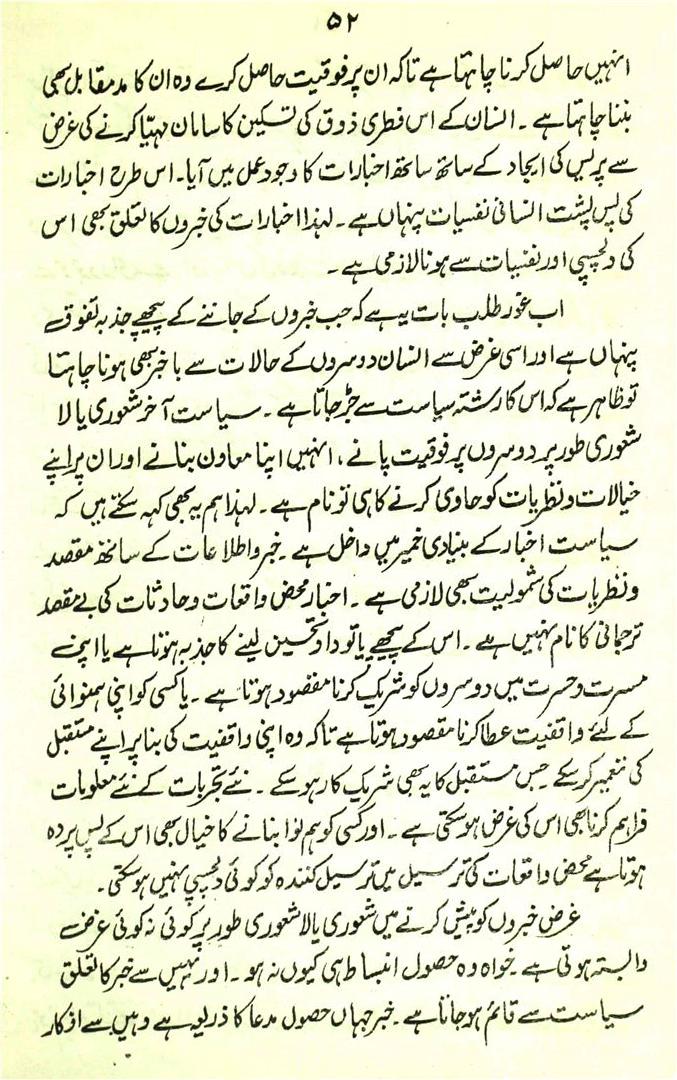 ۵۲
انہیں حاصل کرنا چاہتا ہے تاکہ ان پر فوقیت حاصل کرے وہ ان کا مدمقابل بھی
بننا چاہتا ہے ۔ انسان کے اس فطری ذوق کی تسکین کا سامان مہیّا کرنے کی غرض
سے پریس کی ایجاد کے ساتھ ساتھ اخبارات کا وجود عمل میں آیا۔ اس طرح اخبارات
کی پس پشت انسانی نفسیات پنہاں ہے ۔ لہذا اخبارات کی خبروں کا تعلق بھی اس
کی دلچسپی اور نفسیات سے ہونا لازمی ہے ۔
اب غور طلب بات یہ ہے کہ جب خبروں کے جاننے کے پیچھے جذبہ تفوق
پنہاں ہے اور اسی غرض سے انسان دوسروں کے حالات سے باخبر بھی ہونا چاہتا
تو ظاہر ہے کہ اس کا رشتہ سیاست سے جڑ جاتا ہے ۔ سیاست آخر شعوری یا لا
شعوری طور پر دوسروں پر فوقیت پانے ، انہیں اپنا معاون بنانے اور ان پر اپنے
خیالات و نظریات کو حاوی کرنے کا ہی تو نام ہے ۔ لہذا ہم یہ بھی کہہ سکتے ہیں کہ
سیاست اخبار کے بنیادی خمیر میں داخل ہے ۔ خبر و اطلاعات کے ساتھ مقصد
و نظریات کی شمولیت بھی لازمی ہے ۔ اخبار محض واقعات و حادثات کی بے مقصد
ترجمانی کا نام نہیں ہے ۔ اس کے پیچھے یا تو داد و تحسین لینے کا جذبہ ہوتا ہے یا اپنے
مسرت و حسرت میں دوسروں کو شریک کرنا مقصود ہوتا ہے ۔ یا کسی کو اپنی ہمنوائی
کے لئے واقفیت عطا کرنا مقصود ہوتا ہے تاکہ وہ اپنی واقفیت کی بنا پر اپنے مستقبل
کی تعمیر کر سکے ۔ جس مستقبل کا یہ بھی شریک کار ہو سکے ۔ نئے تجربات کے نئے معلومات
فراہم کرنا بھی اس کی غرض ہو سکتی ہے ۔ اور کسی کو ہم نوا بنانے کا خیال بھی اس کے پس پردہ
ہوتا ہے محض واقعات کی ترسیل میں ترسیل کنندہ کو کوئی دلچسپی نہیں ہو سکتی ۔
غرض خبروں کو پیش کرنے میں شعوری یا لا شعوری طور پر کوئی نہ کوئی غرض
وابستہ ہوتی ہے ۔ خواہ وہ حصول انبساط ہی کیوں نہ ہو ۔ اور یہیں سے خبر کا تعلق
سیاست سے قائم ہو جاتا ہے ۔ خبر جہاں حصول مدعا کا ذریعہ ہے وہیں سے افکار